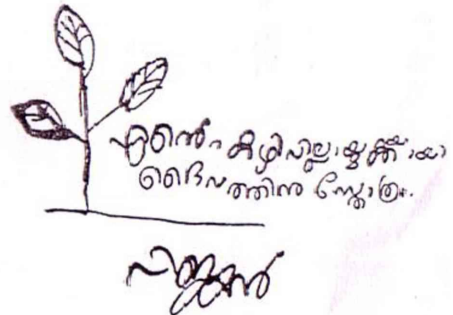 എന്റെ കഴിവില്ലായ്മക്കായി
ദൈവത്തിനു സ്തോത്രം.